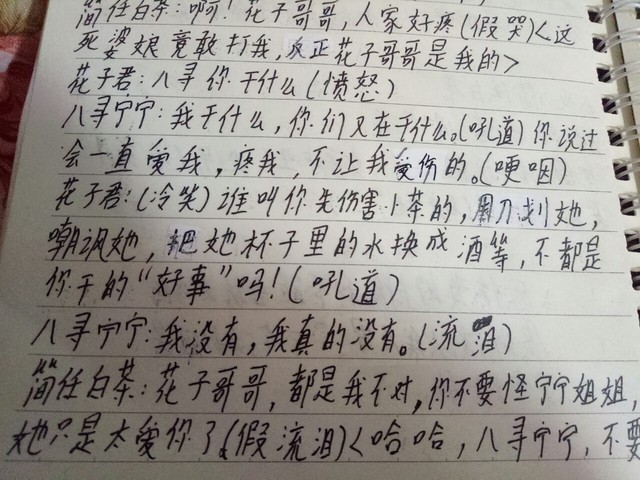 简任白茶:啊!花子哥哥,人家好疼(假哭)<这
死婆娘竟敢打我,反正花子哥哥是我的>
花子君:八寻你干什么(愤怒)
八寻宁宁:我干什么,你们又在干什么。(吼道)你说过
会一直爱我,疼我,不让我受伤的。(哽咽)
花子君:(冷笑)谁叫你先伤害小茶的,用刀划她,
嘲讽她,把她杯子里的水换成酒等,不都是
你干的“好事”吗!(吼道)
八寻宁宁:我没有,我真的没有。(流泪)
简任白茶:花子哥哥,都是我不对,你不要怪宁宁姐姐,
她只是太爱你了(假流泪)<哈哈,八寻宁宁,不要